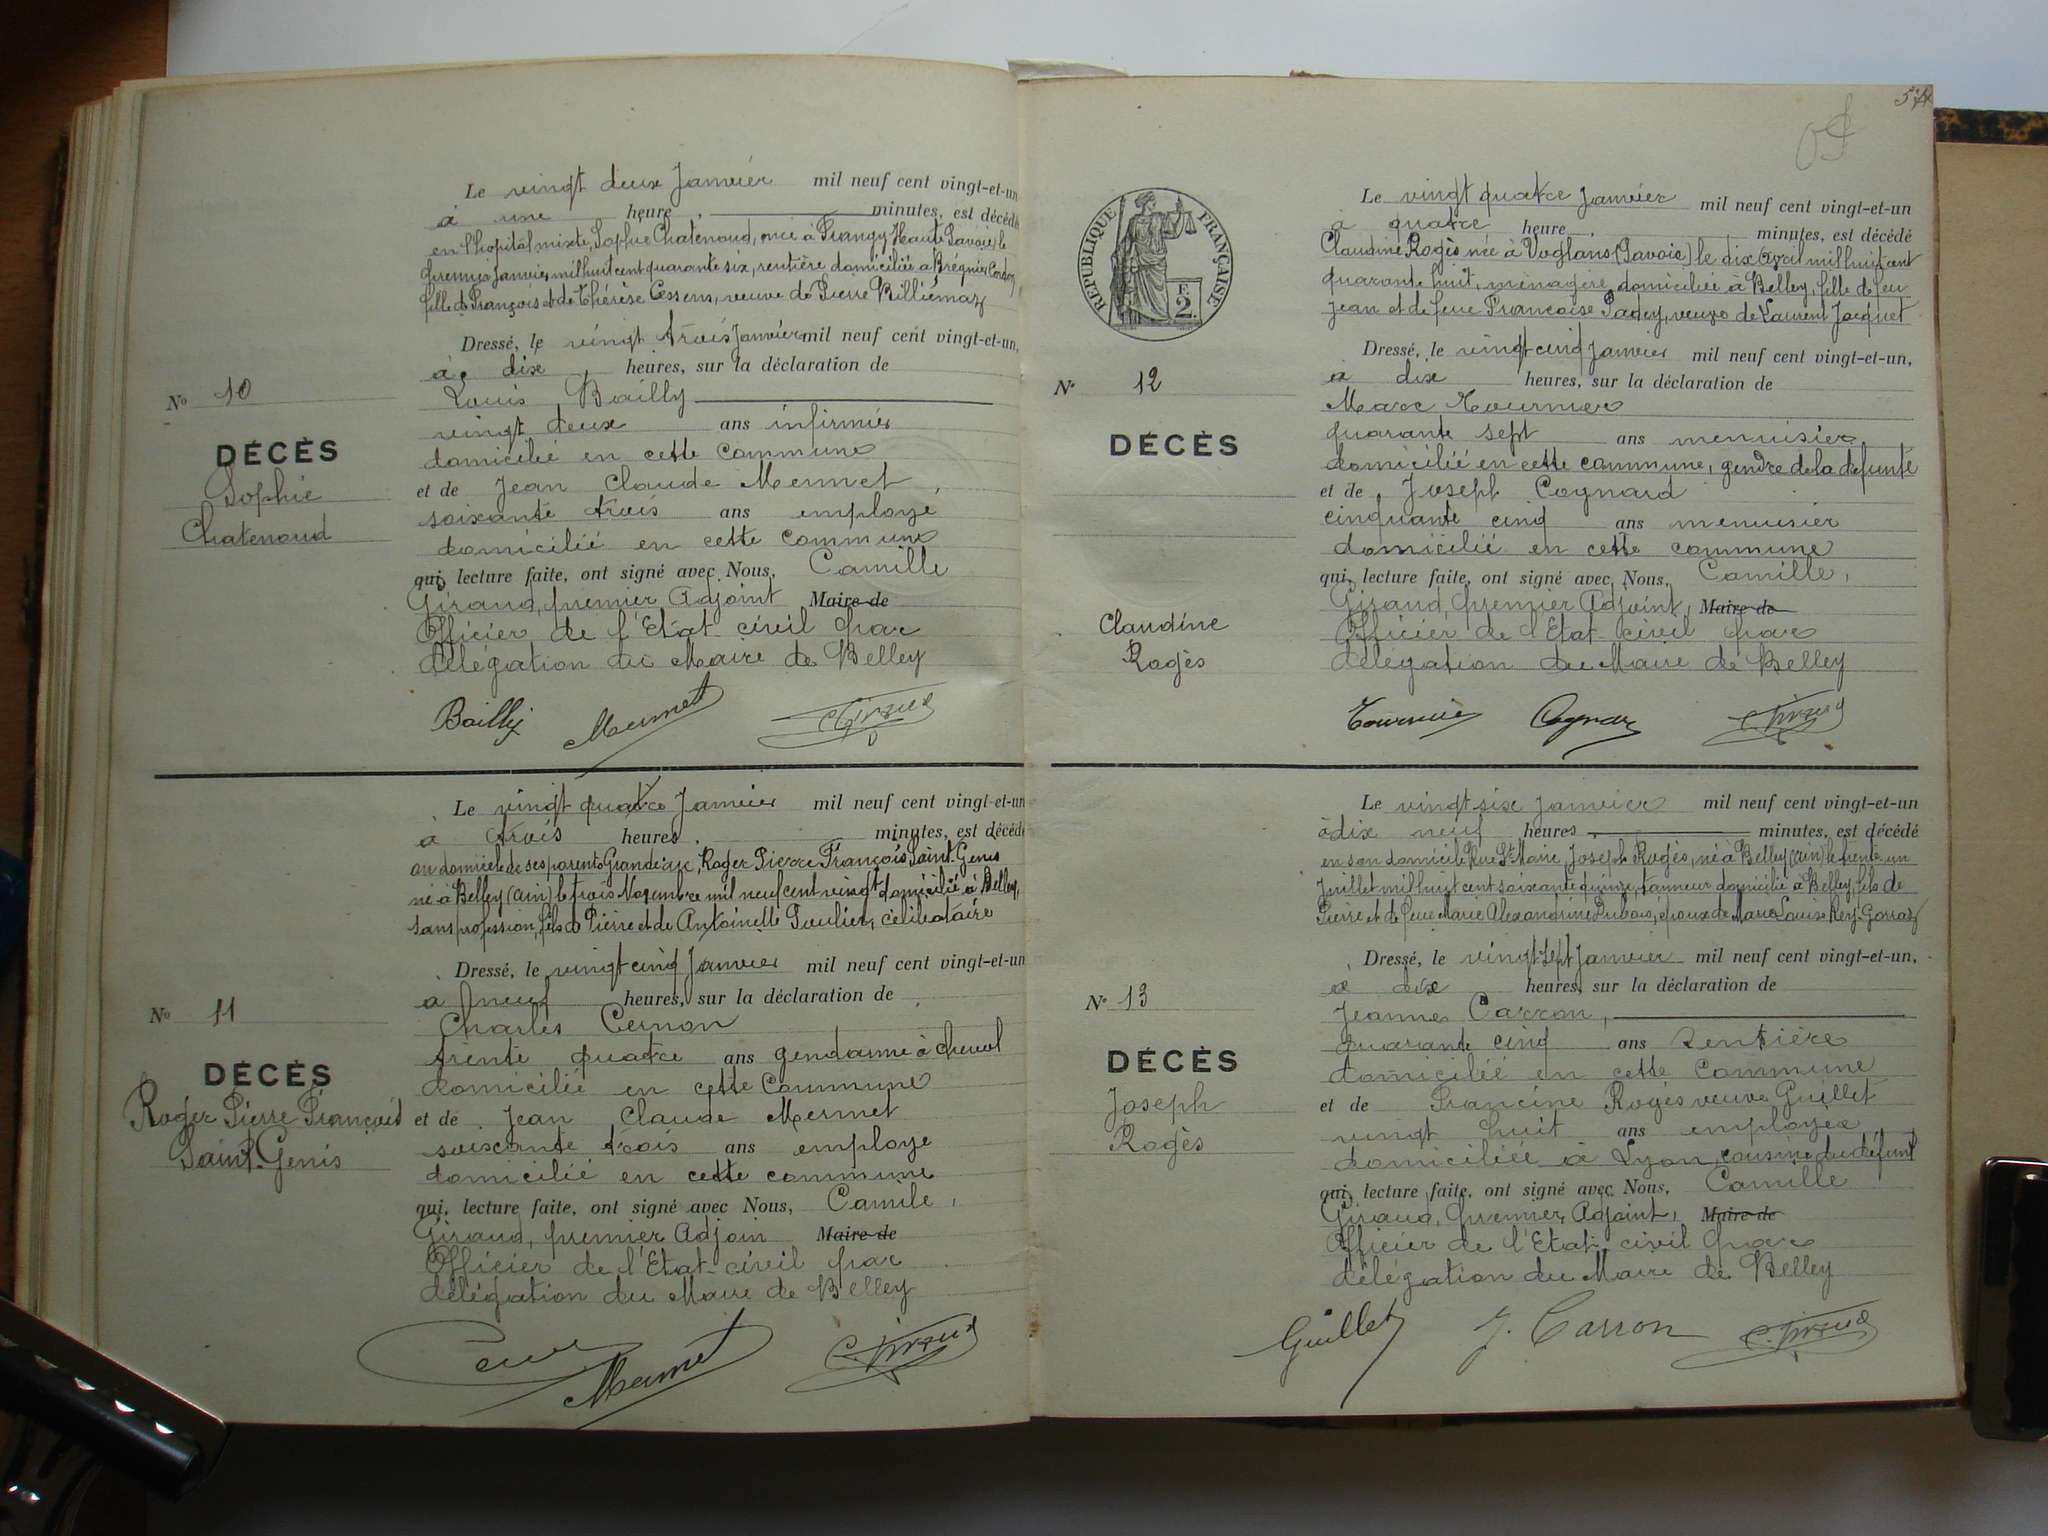 Le vingt deux Janvier mil neuf cent vingt-et-un
à une heure, minutes, est décédé
en l'hopital mixte, Sophie Chatenoud, née à Frangy Haute Savoie, le
premier Janvier mil huit cent quarante six, rentière domiciliée à Brégnier Cordon,
fille de François et de Thérèse Cessens, veuve de Pierre Billiémaz
Dressé, le vingt trois Janvier mil neuf cent vingt-et-un,
à dix heures, sur la déclaration de
Louis Bailly
vingt deux ans infirmier
domicilié en cette commune
et de Jean Claude Mermet,
soixante trois ans employé
domicilié en cette commune
qui, lecture faite, ont signé avec Nous, Camille
Giraud, premier Adjoint Maire de
Officier de l'Etat-civil par
délégation du Maire de Belley
No 10
DÉCÈS
Sophie
Chatenoud
Bailly Mermet C. Giraud
Le vingt quatre Janvier mil neuf cent vingt-et-un
à trois heures, minutes, est décédé
au domicile de ses parents Grande rue, Roger Pierre François Saint-Genis
né à Belley (Ain) le trois Novembre mil neuf cent vingt domicilié à Belley,
sans profession, fils de Pierre et de Antoinette Paulier, célibataire
Dressé, le vingt cinq Janvier mil neuf cent vingt-et-un
à neuf heures, sur la déclaration de
Charles Cernon
trente quatre ans gendarme à cheval
domicilié en cette commune
et de Jean Claude Mermet
soixante trois ans employé
domicilié en cette commune
qui, lecture faite, ont signé avec Nous, Camile,
Giraud, premier Adjoin Maire de
Officier de l'Etat-civil par
délégation du Maire de Belley
No 11
DÉCÈS
Roger Pierre François
Saint-Genis
Mermet C. Giraud
RÉPUBLIQUE FRANÇAISE
F.
2.
Le vingt quatre Janvier mil neuf cent vingt-et-un
à quatre heure, minutes, est décédé
Claudine Rogès née à Voglans (Savoie) le dix Avril mil huit cent
quarante huit, ménagère domiciliée à Belley, fille de feu
Jean et de feue Françoise Padey, veuve de Laurent Jacquet
Dressé, le vingt cinq Janvier mil neuf cent vingt-et-un,
à dix heures, sur la déclaration de
Marc Tournier
quarante sept ans menuisier
domicilié en cette commune, gendre de la défunte
et de Joseph Cognard
cinquante cinq ans menuisier
domicilié en cette commune
qui, lecture faite, ont signé avec Nous, Camille,
Giraud, premier Adjoint, Maire de
Officier de l'Etat-civil par
délégation du Maire de Belley
No 12
DÉCÈS
Claudine
Rogès
Tournier Cognard C. Giraud
Le vingt six janvier mil neuf cent vingt-et-un
à dix neuf heures minutes, est décédé
en son domicile Rue Ste Marie, Joseph Rogès, né à Belley (Ain) le trente un
Juillet mil huit cent soixante quinze, tanneur domicilié à Belley, fils de
Pierre et de feue Marie Alexandrine Dubois, époux de Marie Louise Rey-Gorraz
Dressé, le vingt sept Janvier mil neuf cent vingt-et-un,
à dix heures, sur la déclaration de
Jeanne Carron,
quarante cinq ans Rentière
domiciliée en cette commune
et de Francine Rogès veuve Guillet
vingt huit ans employée
domiciliée à Lyon, cousine du défunt
qui, lecture faite, ont signé avec Nous, Camille
Giraud, premier, Adjoint, Maire de
Officier de l'Etat-civil par
délégation du Maire de Belley
No 13
DÉCÈS
Joseph
Rogès
Guillet J. Carron C. Giraud